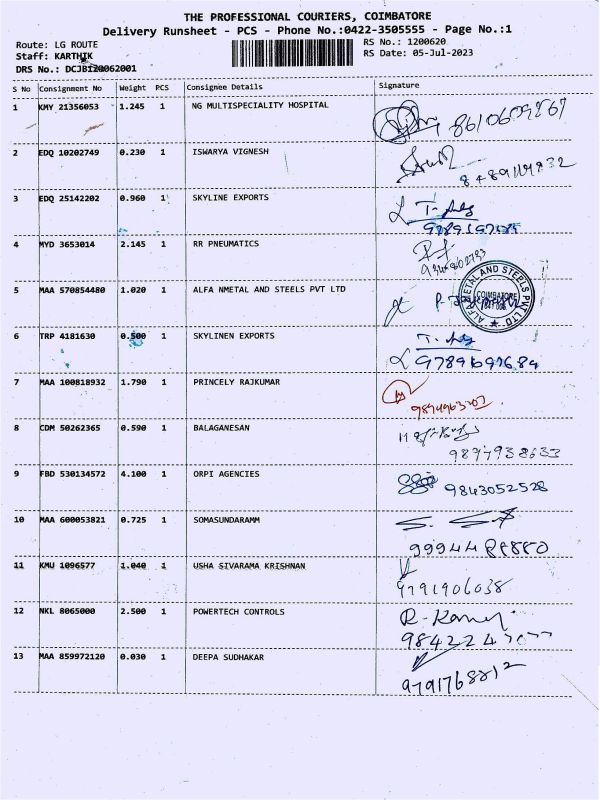 THE PROFESSIONAL COURIERS, COIMBATORE
Delivery Runsheet - PCS - Phone No.:0422-3505555 - Page No.:1
Route: LG ROUTE
RS No.: 1200620
Staff: KARTHIK
RS Date: 05-Jul-2023
DRS No.: DCJB120062001
S No Consignment No Weight PCS Consignee Details Signature
1 KMY 21356053 1.245 1 NG MULTISPECIALITY HOSPITAL
2 EDQ 10202749 0.230 1 ISWARYA VIGNESH
3 EDQ 25142202 0.960 1 SKYLINE EXPORTS
4 MYD 3653014 2.145 1 RR PNEUMATICS
5 MAA 570854480 1.020 1 ALFA NMETAL AND STEELS PVT LTD
ALFA METAL AND STEELS PVT LTD
COIMBATORE
6 TRP 4181630 0.500 1 SKYLINEN EXPORTS
9789697684
7 MAA 100818932 1.790 1 PRINCELY RAJKUMAR
8 CDM 50262365 0.590 1 BALAGANESAN
9 FBD 530134572 4.100 1 ORPI AGENCIES
9843052528
10 MAA 600053821 0.725 1 SOMASUNDARAMM
11 KMU 1096577 1.040 1 USHA SIVARAMA KRISHNAN
9791906038
12 NKL 8065000 2.500 1 POWERTECH CONTROLS
13 MAA 859972120 0.030 1 DEEPA SUDHAKAR